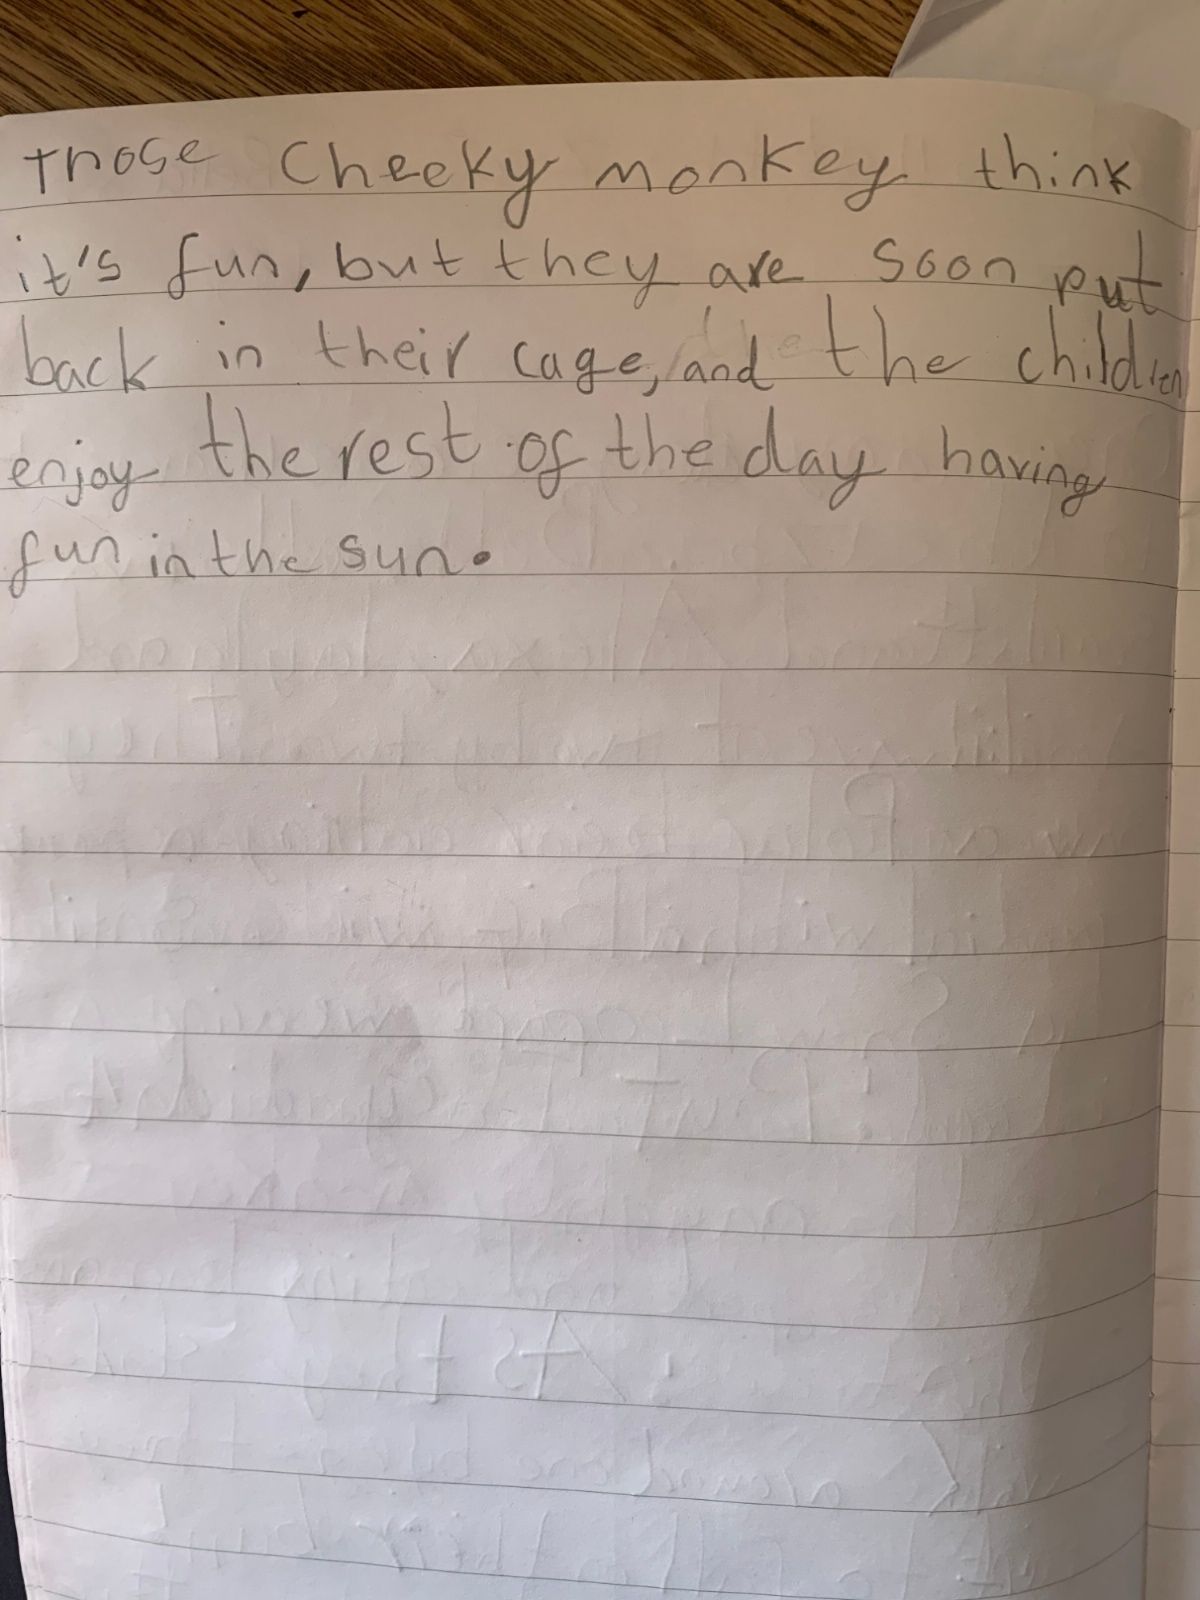 Those Cheeky monkey think
it's fun, but they are soon put
back in their cage, and the children
enjoy the rest of the day having
fun in the sun.